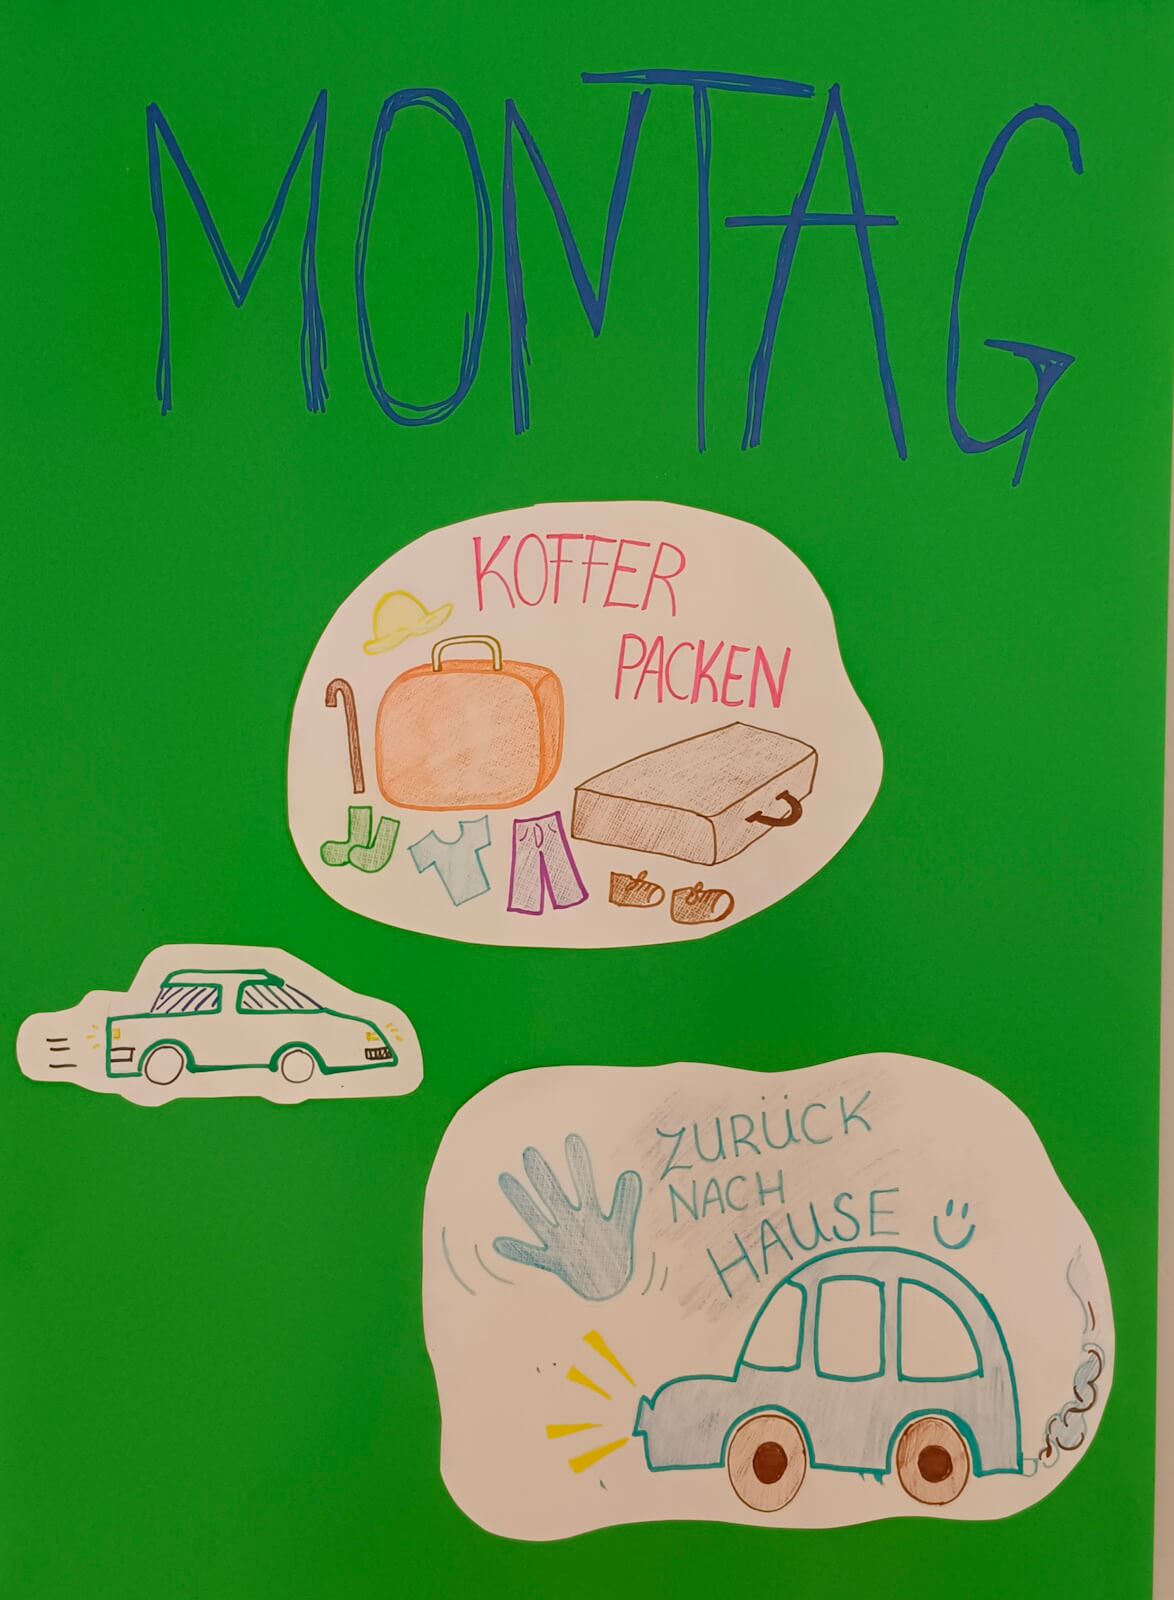 MONTAG
KOFFER
PACKEN
ZURÜCK
NACH
HAUSE